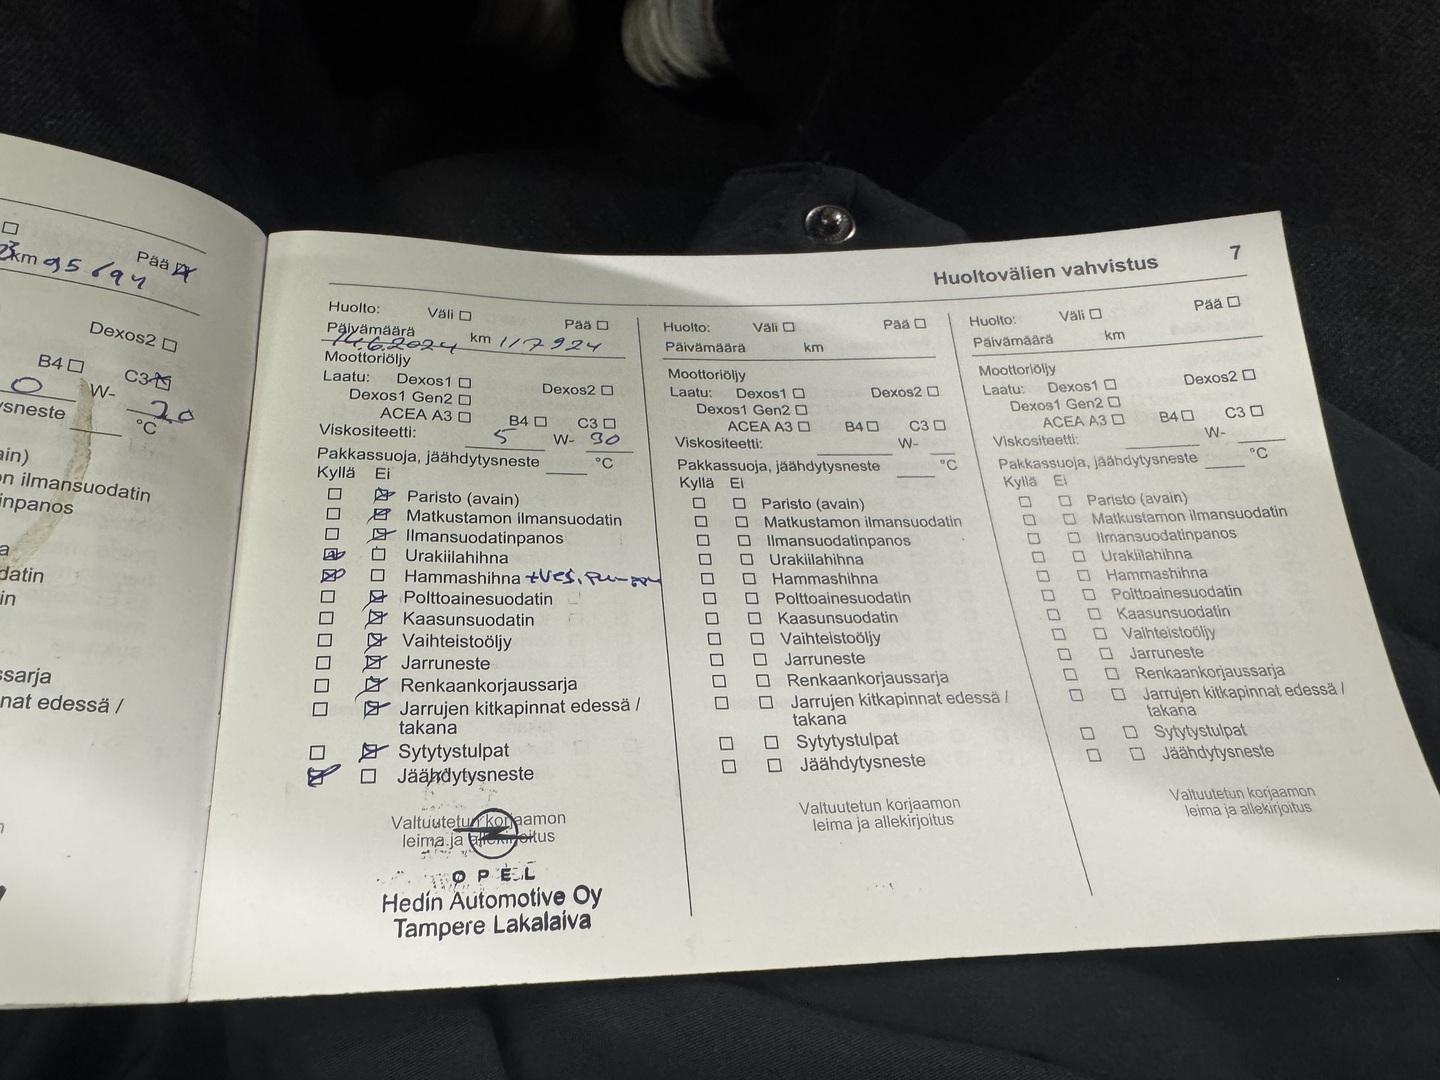 km 95694
Pää
Dexos2
B4
C3
0 W- 20
°C
n ilmansuodatin
datin
in
nat edessä /
Huoltovälien vahvistus
7
Huolto: Väli Pää
Päivämäärä 14.6.2024 km 117924
Moottoriöljy
Laatu: Dexos1 Dexos2
Dexos1 Gen2
ACEA A3 B4 C3
Viskositeetti: 5 W- 30
Pakkassuoja, jäähdytysneste °C
Kyllä Ei
Paristo (avain)
Matkustamon ilmansuodatin
Ilmansuodatinpanos
Urakiilahihna
Hammashihna +ves.pumppu
Polttoainesuodatin
Kaasunsuodatin
Vaihteistoöljy
Jarruneste
Renkaankorjaussarja
Jarrujen kitkapinnat edessä /
takana
Sytytystulpat
Jäähdytysneste
Valtuutetun korjaamon
leima ja allekirjoitus
OPEL
Hedin Automotive Oy
Tampere Lakalaiva
Huolto: Väli Pää
Päivämäärä km
Moottoriöljy
Laatu: Dexos1 Dexos2
Dexos1 Gen2
ACEA A3 B4 C3
Viskositeetti: W-
Pakkassuoja, jäähdytysneste °C
Kyllä Ei
Paristo (avain)
Matkustamon ilmansuodatin
Ilmansuodatinpanos
Urakiilahihna
Hammashihna
Polttoainesuodatin
Kaasunsuodatin
Vaihteistoöljy
Jarruneste
Renkaankorjaussarja
Jarrujen kitkapinnat edessä /
takana
Sytytystulpat
Jäähdytysneste
Valtuutetun korjaamon
leima ja allekirjoitus
Huolto: Väli Pää
Päivämäärä km
Moottoriöljy
Laatu: Dexos1 Dexos2
Dexos1 Gen2
ACEA A3 B4 C3
Viskositeetti: W-
Pakkassuoja, jäähdytysneste °C
Kyllä Ei
Paristo (avain)
Matkustamon ilmansuodatin
Ilmansuodatinpanos
Urakiilahihna
Hammashihna
Polttoainesuodatin
Kaasunsuodatin
Vaihteistoöljy
Jarruneste
Renkaankorjaussarja
Jarrujen kitkapinnat edessä /
takana
Sytytystulpat
Jäähdytysneste
Valtuutetun korjaamon
leima ja allekirjoitus